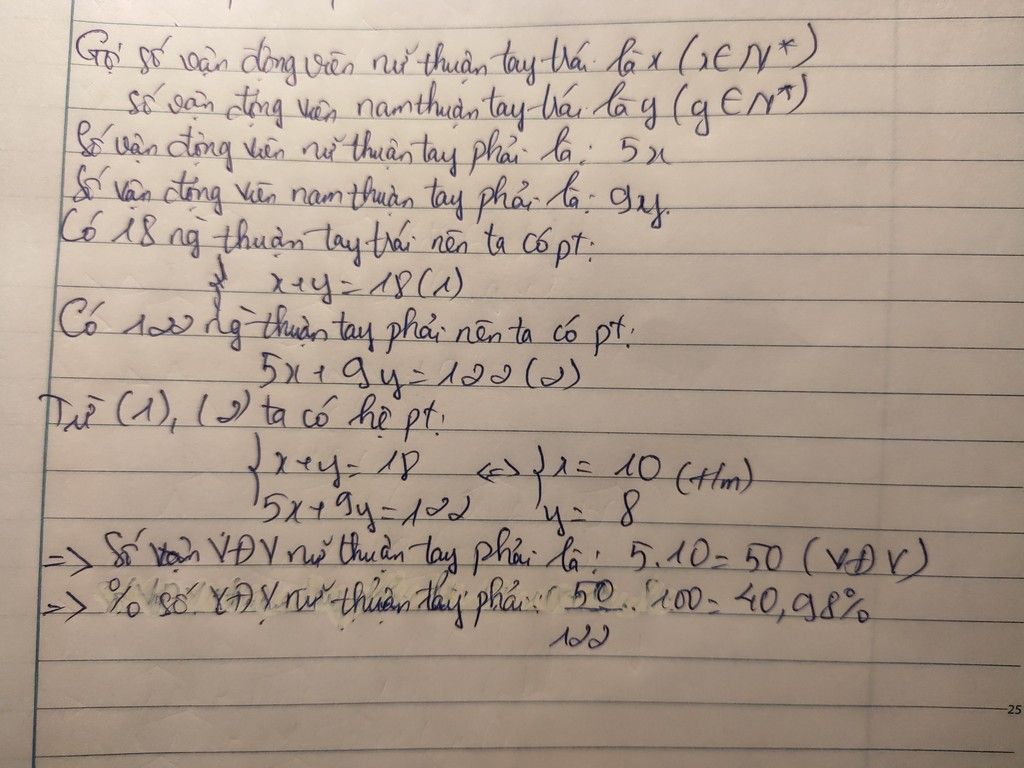 Gọi số vận động viên nữ thuận tay trái là x (x∈N*)
số vận động viên nam thuận tay trái là y (y∈N*)
Số vận động viên nữ thuận tay phải là: 5x
Số vận động viên nam thuận tay phải là: 9y.
Có 18 ng thuận tay trái nên ta có pt:
x+y=18(1)
Có 122 ng thuận tay phải nên ta có pt:
5x+9y=122(2)
Từ (1), (2) ta có hệ pt:
{x+y=18 <=> {x=10 (t/m)
5x+9y=122 y=8
=> Số VĐV nữ thuận tay phải là: 5.10=50 (VĐV)
=> % số VĐV nữ thuận tay phải: 50/122 . 100=40,98%
25